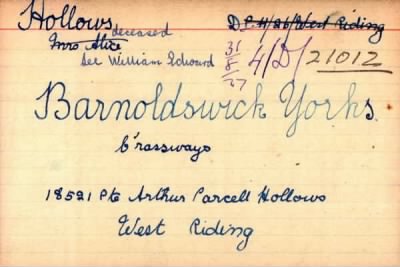 Hollows
deceased
Mrs Alice
See William Edward
D.P. 4/26/West Riding
31/8/27
4/D/21012
Barnoldswick Yorks.
C'rassways
18521 Pte Arthur Parcell Hollows
West Riding